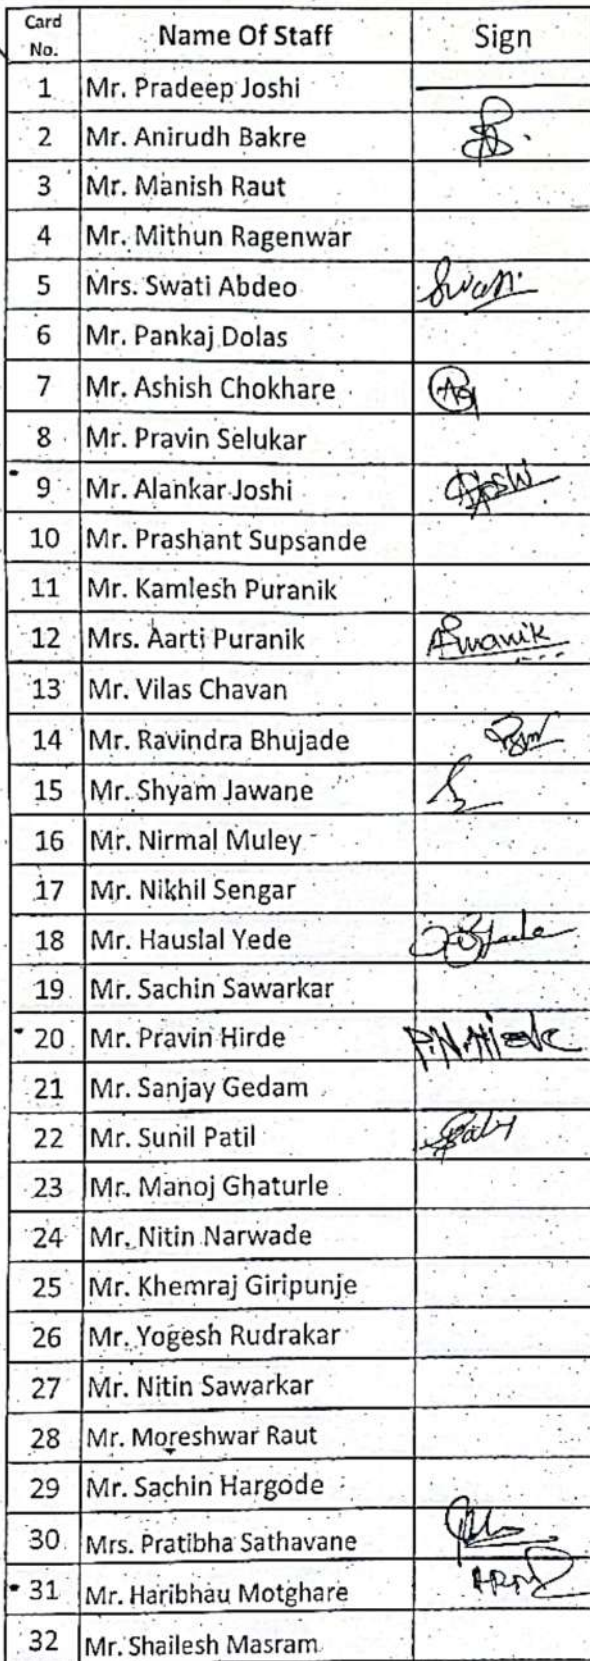 Card No. Name Of Staff Sign
1 Mr. Pradeep Joshi
2 Mr. Anirudh Bakre
3 Mr. Manish Raut
4 Mr. Mithun Ragenwar
5 Mrs. Swati Abdeo Swati
6 Mr. Pankaj Dolas
7 Mr. Ashish Chokhare
8 Mr. Pravin Selukar
9 Mr. Alankar Joshi
10 Mr. Prashant Supsande
11 Mr. Kamlesh Puranik
12 Mrs. Aarti Puranik
13 Mr. Vilas Chavan
14 Mr. Ravindra Bhujade
15 Mr. Shyam Jawane
16 Mr. Nirmal Muley
17 Mr. Nikhil Sengar
18 Mr. Hauslal Yede
19 Mr. Sachin Sawarkar
20 Mr. Pravin Hirde
21 Mr. Sanjay Gedam
22 Mr. Sunil Patil
23 Mr. Manoj Ghaturle
24 Mr. Nitin Narwade
25 Mr. Khemraj Giripunje
26 Mr. Yogesh Rudrakar
27 Mr. Nitin Sawarkar
28 Mr. Moreshwar Raut
29 Mr. Sachin Hargode
30 Mrs. Pratibha Sathavane
31 Mr. Haribhau Motghare
32 Mr. Shailesh Masram